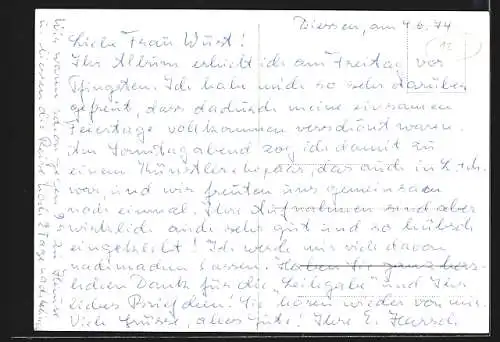 Diessen, am 4.6.74
Liebe Frau Wurst!
Ihr Album erhielt ich am Freitag vor
Pfingsten. Ich habe mich so sehr darüber
gefreut, dass dadurch meine einsamen
Feiertage vollkommen verschönt waren.
Am Sonntagabend zog ich damit zu
einem Künstlerehepaar, das auch in
war, und wir freuten uns gemeinsam
noch einmal. Ihre Aufnahmen sind aber
wirklich auch sehr gut und so hübsch
eingeklebt! Ich werde mir viel davon
nachmachen lassen. Haben Sie ganz herz-
lichen Dank für die "Leihgabe" und Ihr
liebes Brieflein! Sie hören wieder von mir.
Viele Grüsse, alles Gute! Ihre E.
Wir waren
u. liessen die Post noch 2 Tage